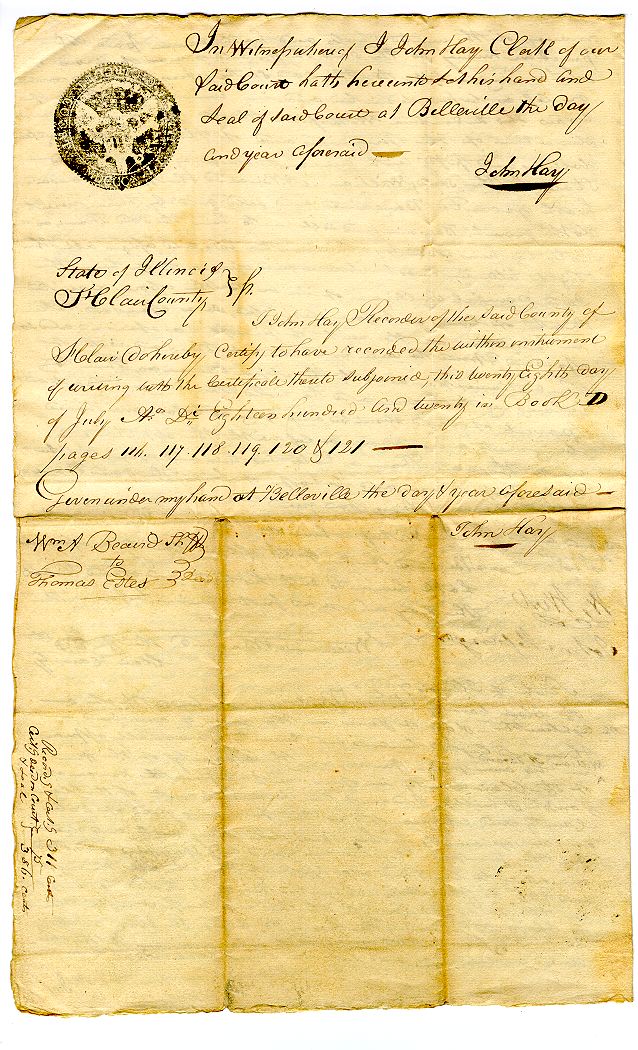 In Witness whereof I John Hay Clerk of our
said Court hath hereunto set his hand and
Seal of said Court at Belleville the day
and year aforesaid —
John Hay
State of Illinois
St Clair County } ss.
I John Hay Recorder of the said County of
St Clair do hereby Certify to have recorded the within instrument
of writing with the Certificate thereto subjoined, this twenty Eighth day
of July Ao Di Eighteen hundred and twenty in Book D
pages 117. 118. 119. 120 & 121 —
Given under my hand at Belleville the day & year aforesaid —
John Hay
Wm A Beaird Shff
to
Thomas Estes
Recordg & 311 cents
Court
& Seal
75
386. cents